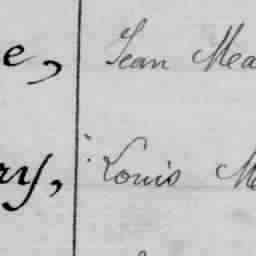 e, Jean Mea
ry, Louis M